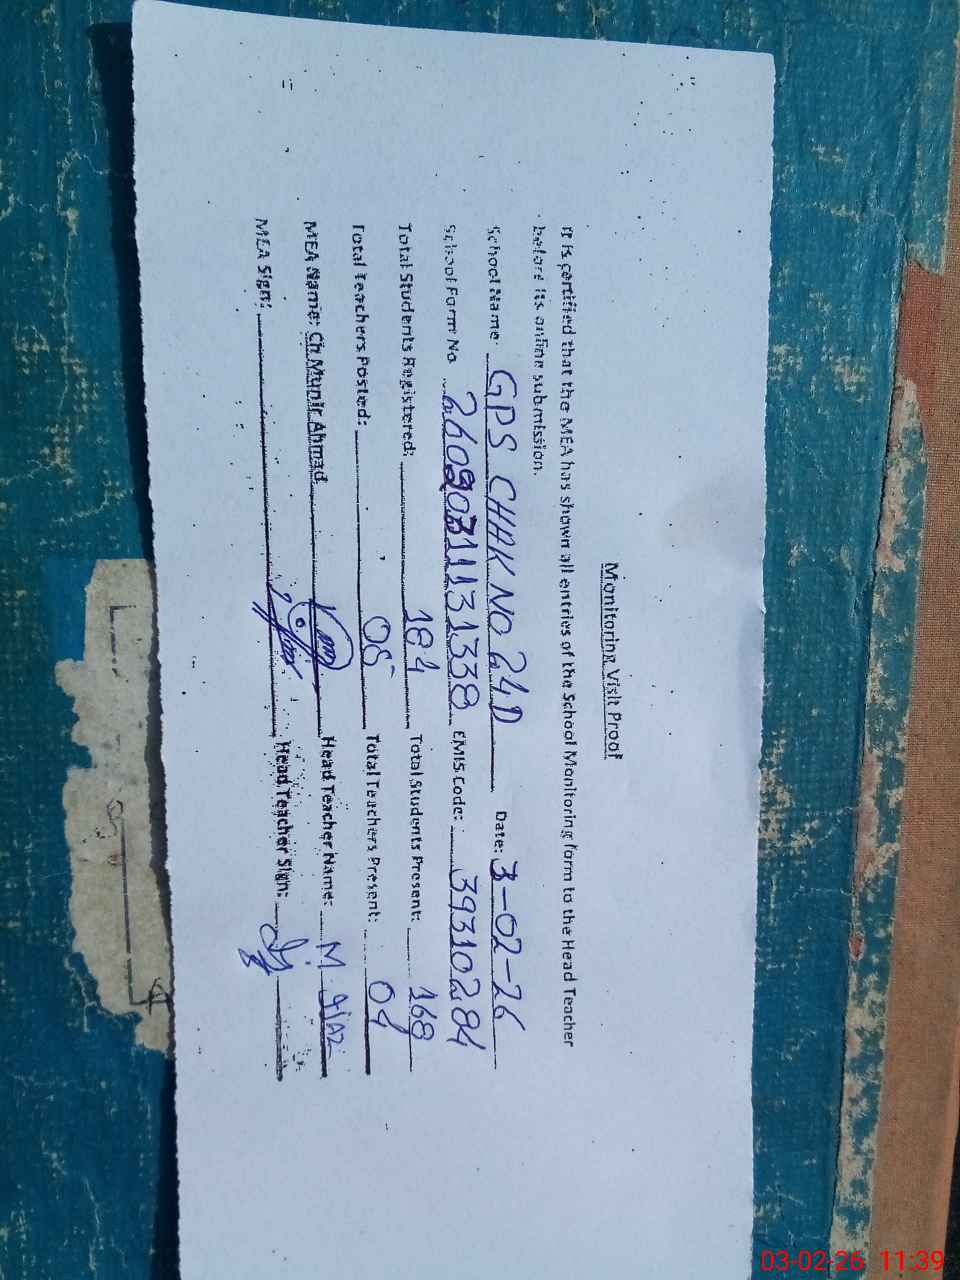 Monitoring Visit Proof
It is certified that the MEA has shown all entries of the School Monitoring form to the Head Teacher
before its online submission.
School Name: GPS CHAK NO 24D Date: 3-02-26
School Form No. EMIS Code: 39310284
Total Students Registered: 184 Total Students Present: 168
Total Teachers Posted: 05 Total Teachers Present: 04
MEA Name: Ch Munir Ahmad Head Teacher Name: M.
MEA Sign: Head Teacher Sign:
03-02-26 11:39